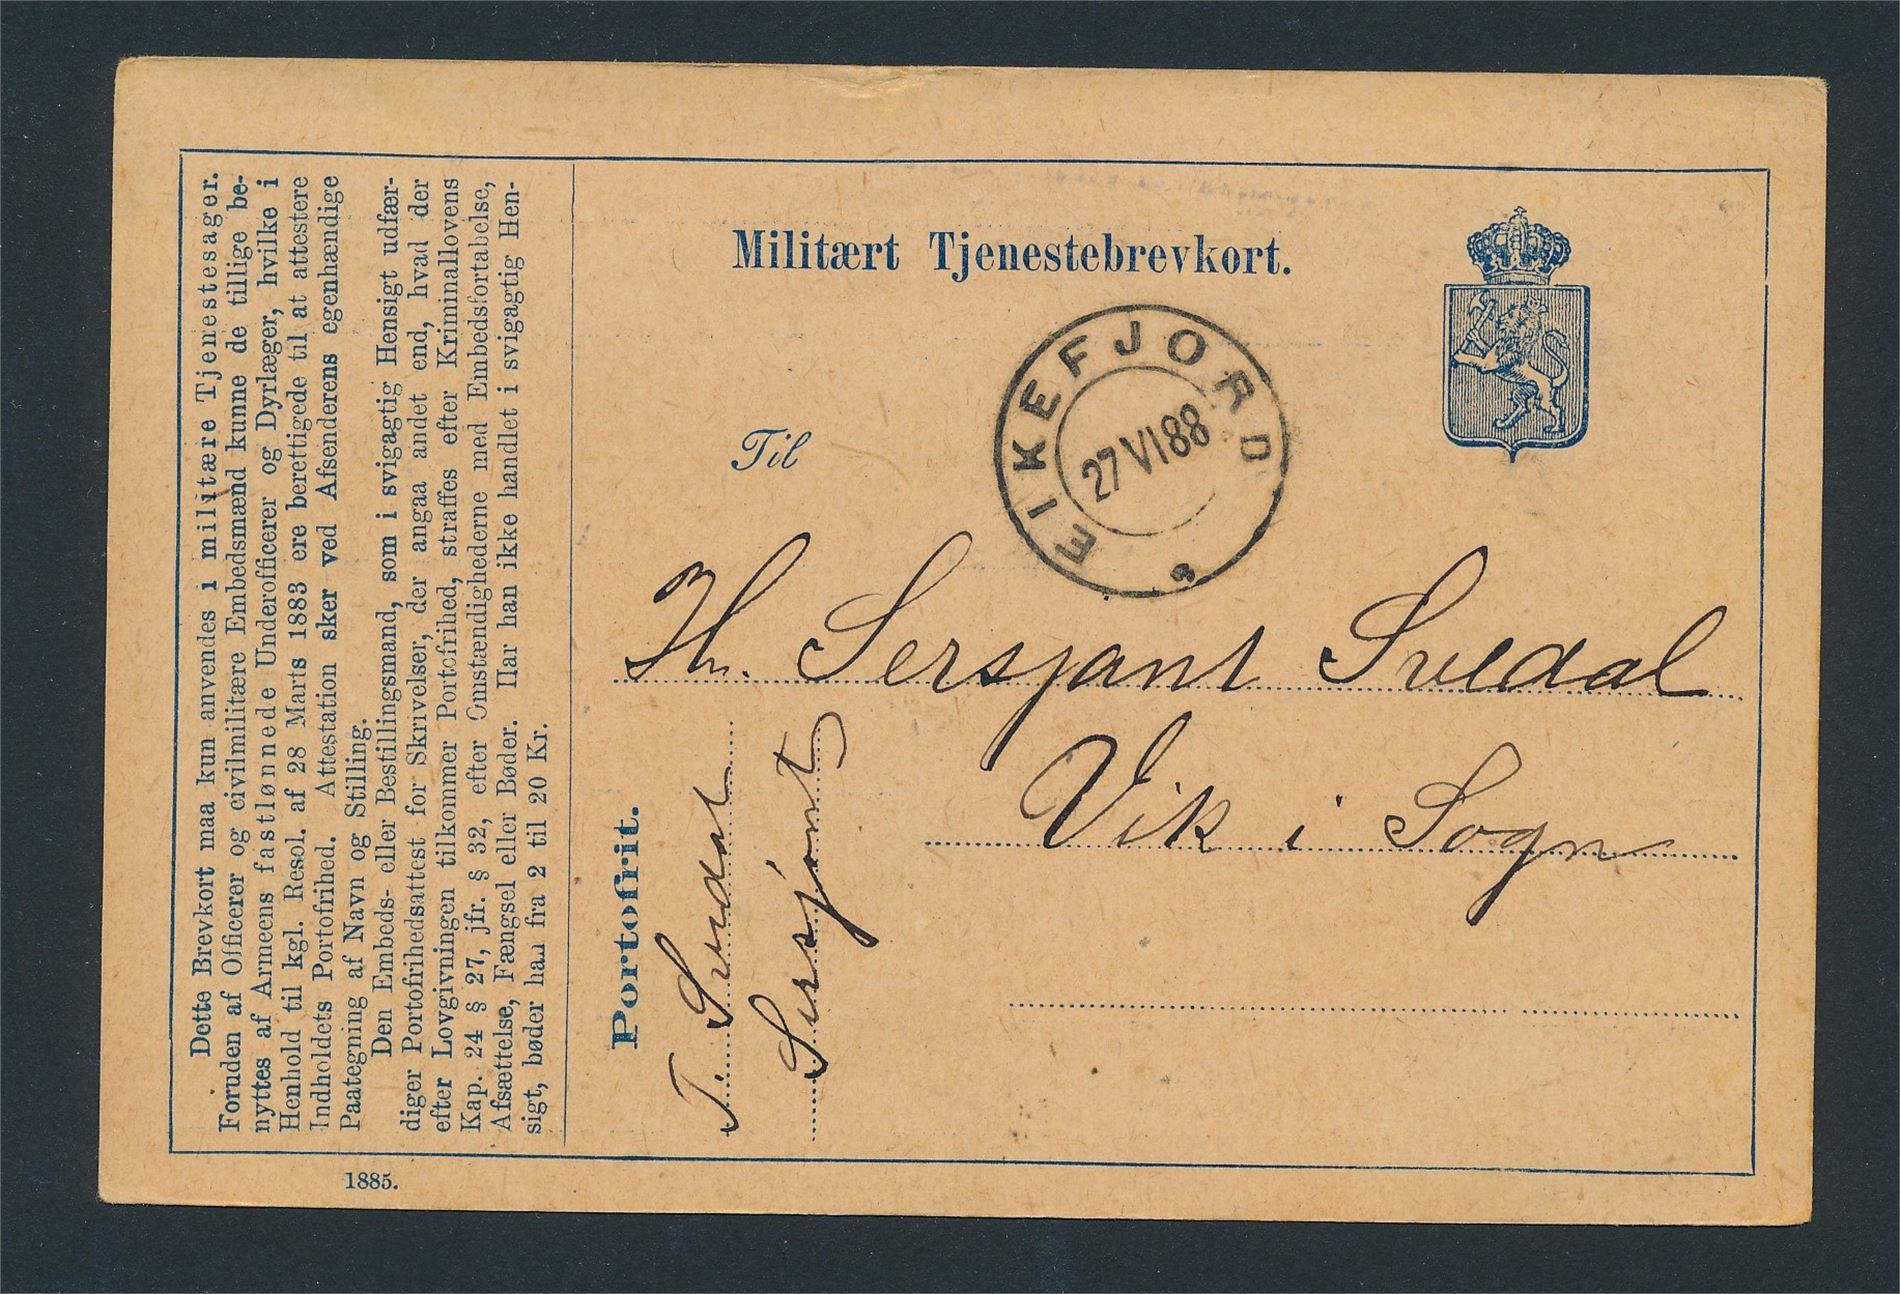 Dette Brevkort maa kun anvendes i militære Tjenestesager.
Foruden af Officerer og civilmilitære Embedsmænd kunne de tillige be-
nyttes af Armeens fastlønnede Underofficerer og Dyrlæger, hvilke i
Henhold til kgl. Resol. af 28 Marts 1883 ere berettigede til at attestere
Indholdets Portofrihed. Attestation sker ved Afsenderens egenhændige
Paategning af Navn og Stilling.
Den Embeds- eller Bestillingsmand, som i svigagtig Hensigt udfær-
diger Portofrihedsattest for Skrivelser, der angaa andet end, hvad der
efter Lovgivningen tilkommer Portofrihed, straffes efter Kriminallovens
Kap. 24 § 27, jfr. § 32, efter Omstændighederne med Embedsfortabelse,
Afsættelse, Fængsel eller Bøder. Har han ikke handlet i svigagtig Hen-
sigt, bøder han fra 2 til 20 Kr.
1885.
Militært Tjenestebrevkort.
EIKEFJORD
27 VI 88
Til
Hr. Sersjant Svedal
Vik i Sogn
Portofrit.
T. Svedal
Sersjant